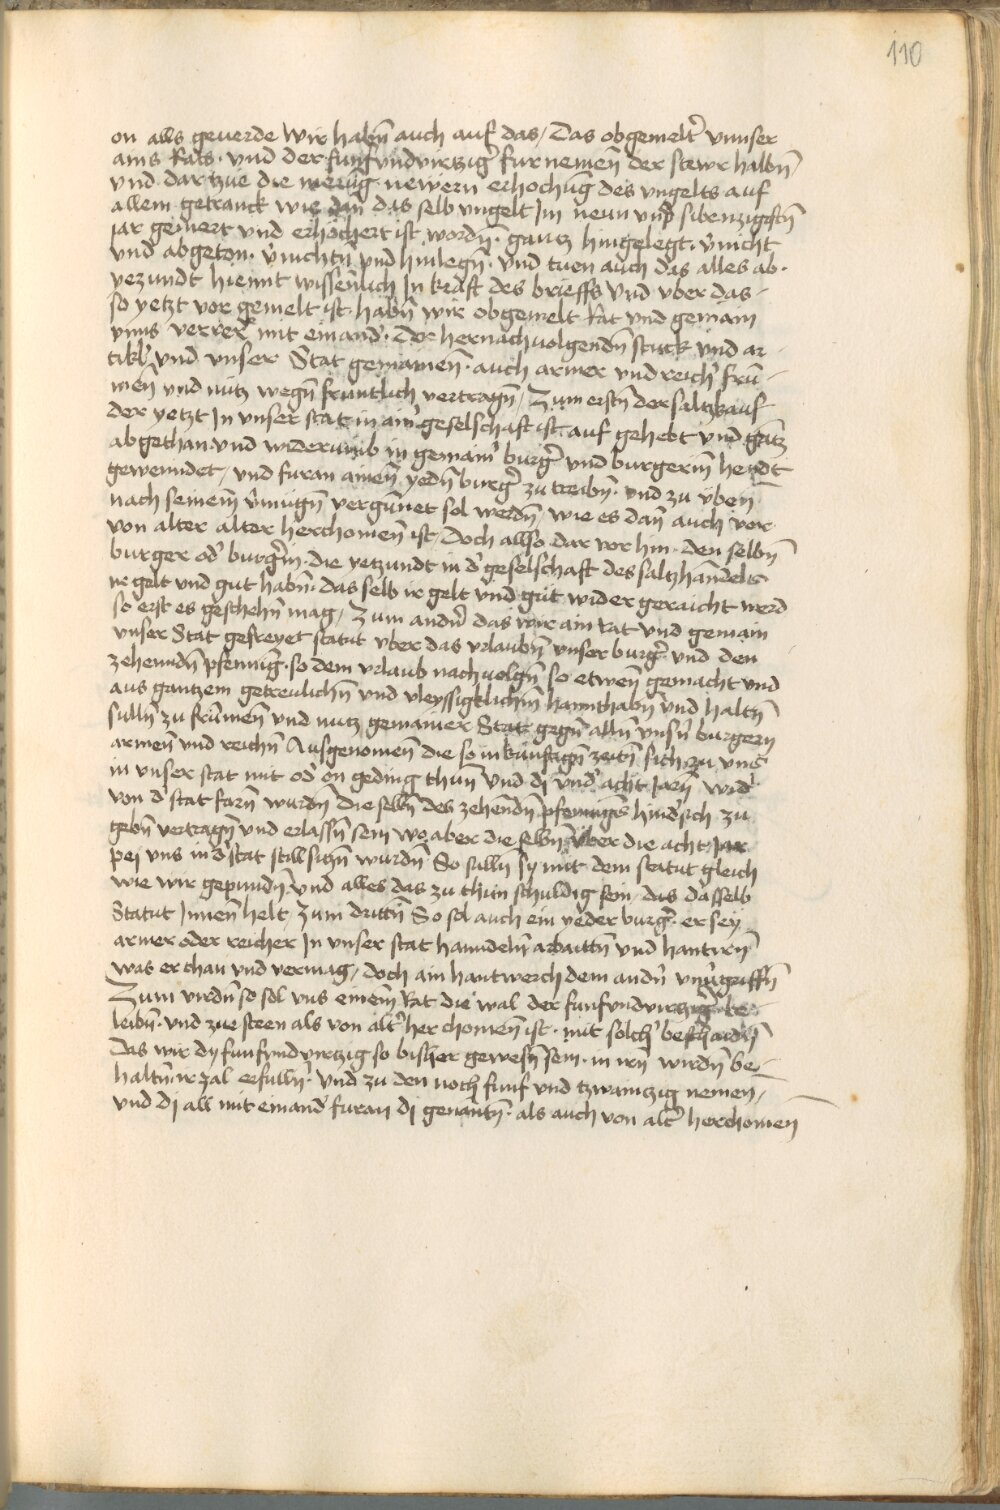 110
on alls geuerde Wir habñ auch auf das / Das obgemelt̃ vnnser
ains Rats · Vnd der funfvndvirtzig̃ furnemeñ der stewr halbñ
vnd dar zue die newerñ erhochũg des vngelts auf
allem getranck wie dañ das selb vngelt Jm neun vnd sibenzigistñ
jar gemert vnd erhochert ist wordñ · gantz hingelegt · v̄nicht
vnd abgeton · v̄nichtñ vnd hinlegñ · Vnd tuen auch das alles ab ·
yezundt hiemit wissenlich Jn krafft des brieffs Vnd vber das
so yetzt vor gemelt ist · habñ wir obgemelt Rat vnd gemain
vnns verrer mit einand̾ · Der hernachuolgendñ stuck vnd ar
tikl̾ vnd vnser Stat gemainen · auch armer vnd reich̾ frũ
meñ vnd nutz wegñ fruntlich vertragñ / Zum erstñ der saltzkauf
der yetzt Jn vnser stat in ain̾ geselschaft ist auf gehebt vnd gãtz
abgethan · vnd widerumb in gemain̾ burg̾ vnd burgerin̄ hendt
gewenndet / vnd furan ainem yedñ burg̾ zu treibñ · vnd zu v̈ben
nach seinem̄ v̄mugñ vergunnet sol werdñ / wie es dañ auch vor
von alter alter herchomeñ ist / Doch allso dar vor hin · den selbñ
burger od̾ burg̾in · die yetzundt in d̾ geselschaft des saltzhanndels
ir gelt vnd gut habñ · das selb ir gelt vnd gut wider geraicht werd
so erst es geschehñ mag / Zum andñ das wir ain Rat vnd gemain
vnser Stat gefreyet statut vber das vrlaubñ vnser burg̾ vnd den
zehenndñ pfenning · so dem vrlaub nachuolgñ so etweñ gemacht vnd
aus gantzem getreulichñ vnd vleyssigklichñ hannthabñ vnd haltñ
sullñ zu frũmeñ vnd nutz gemainer Stat gegñ allñ vnsñ burgern
armeñ vnd reichñ Ausgenomeñ die so in kunftigñ zeitñ sich zu vns
in vnser stat mit od̾ on geding thun Vnd dj vnd̾ acht Jarñ wid̾
von d̾ stat farñ wurdñ die selbñ des zehendñ pfennings hind̾sich zu
gebñ vertragñ vnd erlassñ sein wo aber die selbñ vber die acht Jar
pej vns in d̾ stat still siczñ wurdñ So sullñ sy mit dem statut gleich
wie wir gepundñ vnd alles das zu thun schuldig sein / das dasselb
Statut Jnnen helt / Zum drittñ So sol auch ein yeder burg̾ · er sey
armer oder reicher Jn vnser stat hanndelñ arbaittñ vnd hantirñ
was er chan vnd vermag / doch ain hantwerch dem andñ vnūgriffñ
Zum virdñ so sol vns einem Rat die wal der funfvndvirtzig̾ be
leibñ · vnd zue steen als von alt̾ her chomeñ ist · mit solch̾ beschaidñ
Das wir dy funfvndvirtzig so bisher gewesñ sein · in irñ wirdñ be
haltñ · ir zal erfullñ · vnd zu den noch funf vnd tzwainzig nemen /
vnd dj all mit einand̾ furan dj genantñ · als auch von alt̾ herchomen